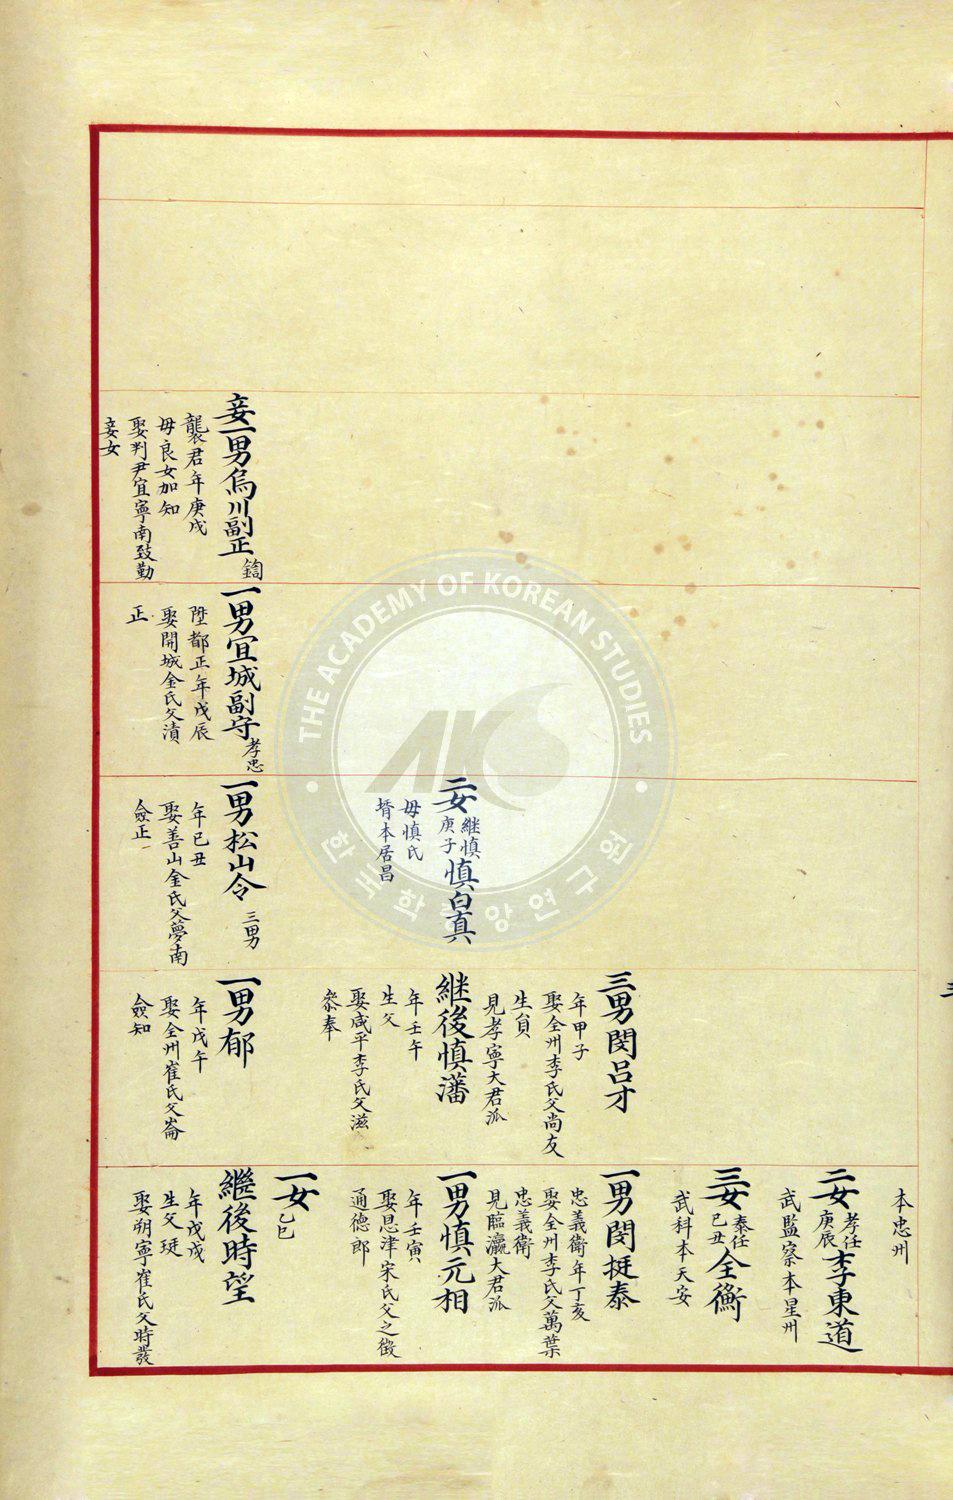 妾一男烏川副正 鍧
襲君年庚戌
母良女加知
娶判尹宜寧南致勤
妾女
一男宜城副守 孝忠
陞都正年戊辰
娶開城金氏父漬
正
二女 継慎 庚子 慎白真
母慎氏
壻本居昌
一男松山令 三男
年己丑
娶善山金氏父夢南
僉正
三男閔呂才
年甲子
娶全州李氏父尚友
生員
見孝寧大君派
継後慎瀋
年壬午
生父
娶咸平李氏父滋
叅奉
一男郁
年戊午
娶全州崔氏父崙
僉知
本忠州
二女 孝任 庚辰 李東道
武監察本星州
三女 泰任 己丑 全衡
武科本天安
一男閔挺泰
忠義衛年丁亥
娶全州李氏父萬葉
忠義衛
見臨瀛大君派
一男慎元相
年壬寅
娶恩津宋氏父之徵
通德郎
一女 乙巳
繼後時望
年戊戌
生父珽
娶朔寧崔氏父時發
三
THE ACADEMY OF KOREAN STUDIES
AKS
한국학중앙연구원